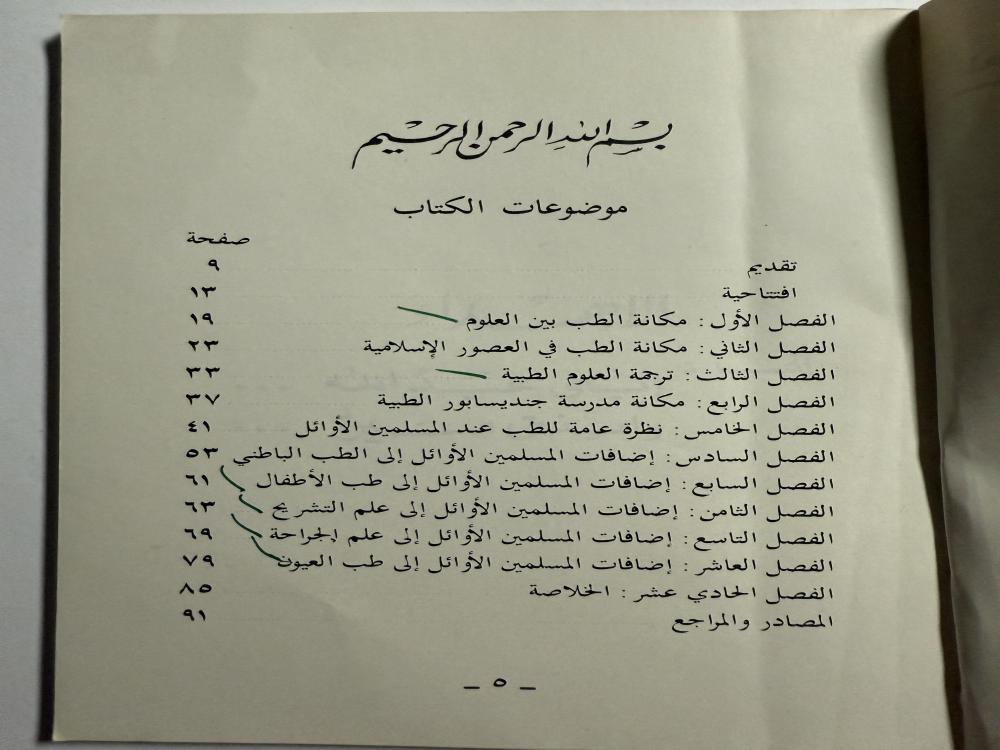 بسم الله الرحمن الرحيم
موضوعات الكتاب
صفحة
تقديم ٩
افتتاحية ١٣
الفصل الأول : مكانة الطب بين العلوم ١٩
الفصل الثاني : مكانة الطب في العصور الإسلامية ٢٣
الفصل الثالث : ترجمة العلوم الطبية ٣٣
الفصل الرابع : مكانة مدرسة جنديسابور الطبية ٣٧
الفصل الخامس : نظرة عامة للطب عند المسلمين الأوائل ٤١
الفصل السادس : إضافات المسلمين الأوائل إلى الطب الباطني ٥٣
الفصل السابع : إضافات المسلمين الأوائل إلى طب الأطفال ٦١
الفصل الثامن : إضافات المسلمين الأوائل إلى علم التشريح ٦٣
الفصل التاسع : إضافات المسلمين الأوائل إلى علم الجراحة ٦٩
الفصل العاشر : إضافات المسلمين الأوائل إلى طب العيون ٧٩
الفصل الحادي عشر : الخلاصة ٨٥
المصادر والمراجع ٩١
– ٥ –